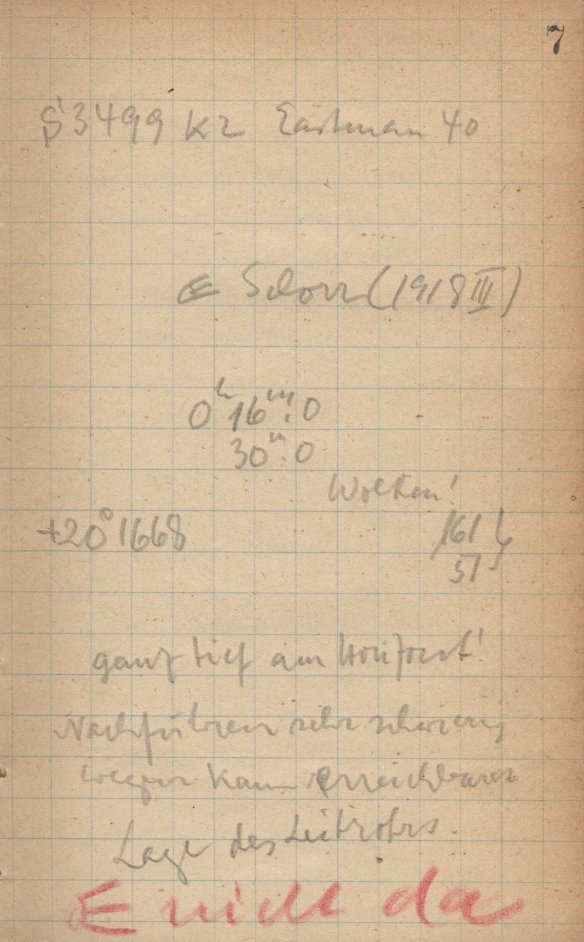 7
S 3499 K2 Eastman 40
E Schorr (1918 III)
0ʰ 16ᵐ.0
30ᵐ.0
Wolken!
+20° 1668
161
51
ganz tief am Horizont!
Nachführen sehr schwierig
wegen kaum erreichbarer
Lage des Leitrohrs.
E nicht da